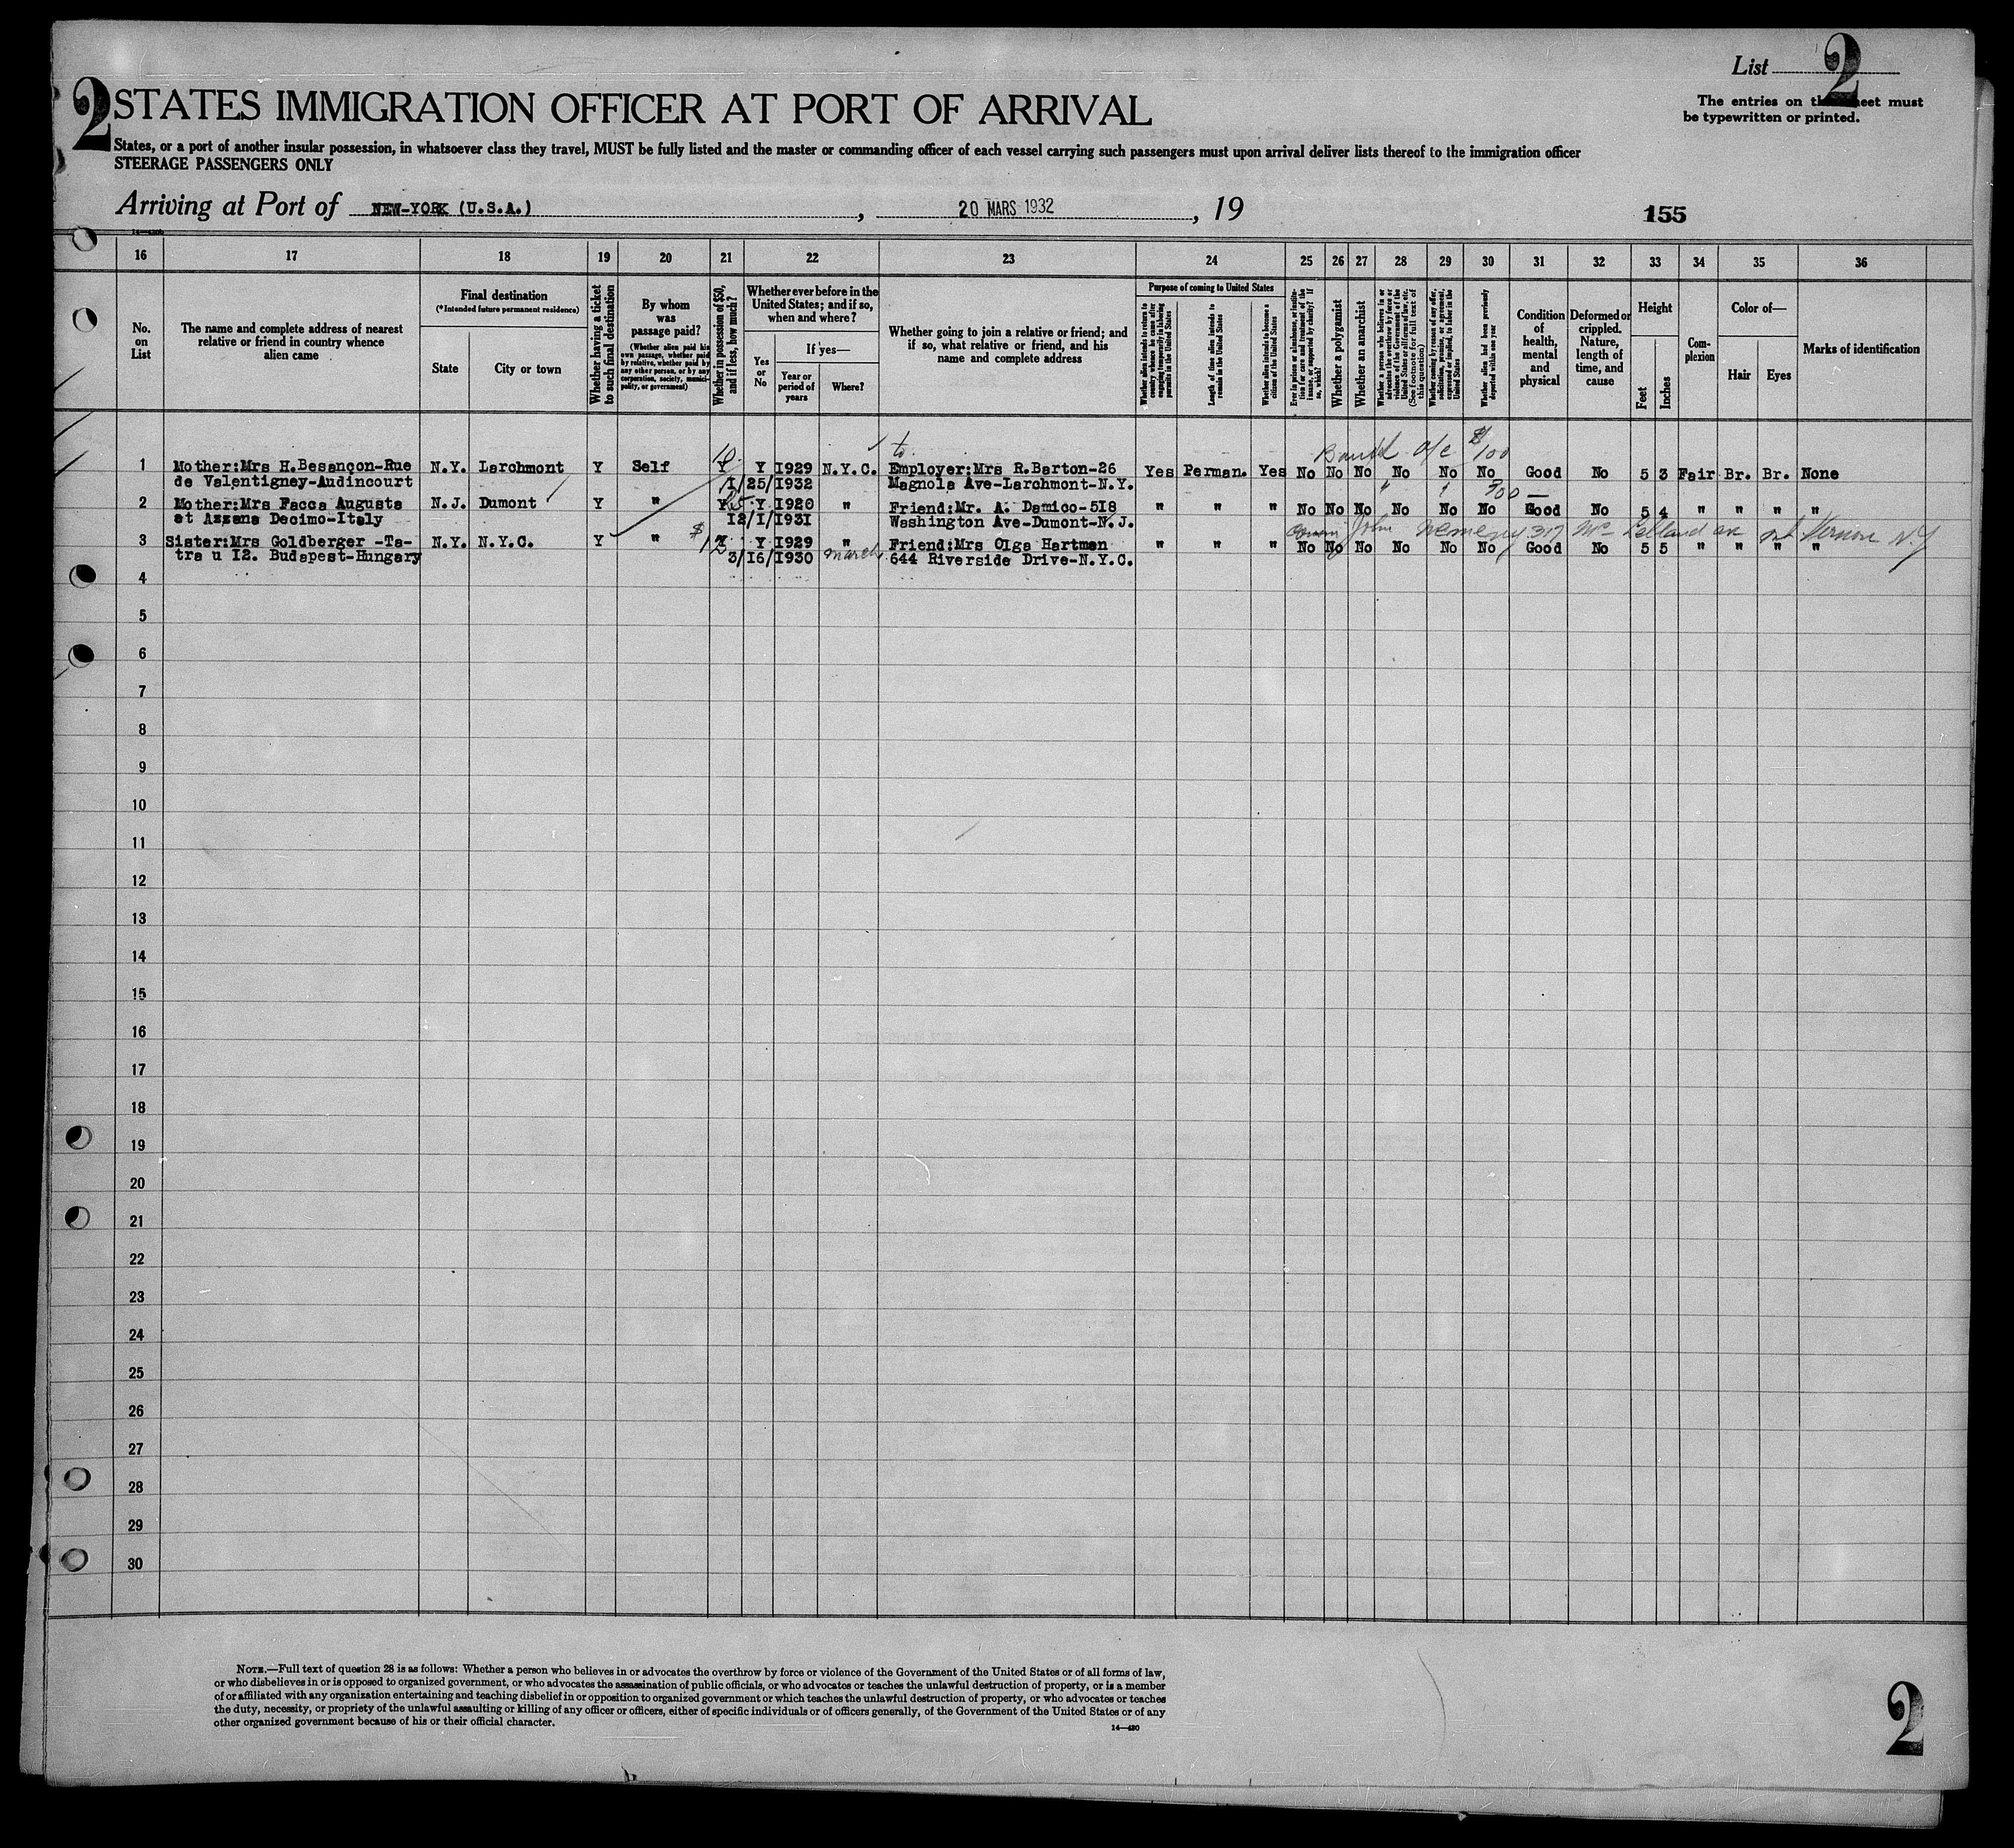 List 2
2 STATES IMMIGRATION OFFICER AT PORT OF ARRIVAL
The entries on this sheet must
be typewritten or printed.
States, or a port of another insular possession, in whatsoever class they travel, MUST be fully listed and the master or commanding officer of each vessel carrying such passengers must upon arrival deliver lists thereof to the immigration officer
STEERAGE PASSENGERS ONLY
Arriving at Port of NEW-YORK (U.S.A.), 20 MARS 1932, 19
155
16 17 18 19 20 21 22 23 24 25 26 27 28 29 30 31 32 33 34 35 36
No. on List
The name and complete address of nearest relative or friend in country whence alien came
Final destination
(*Intended future permanent residence)
State
City or town
Whether having a ticket to such final destination
By whom was passage paid?
(Whether alien paid his own passage, whether paid by relative, whether paid by any other person, or by any corporation, society, municipality, or government)
Whether in possession of $50, and if less, how much?
Whether ever before in the United States; and if so, when and where?
Yes or No
If yes—
Year or period of years
Where?
Whether going to join a relative or friend; and if so, what relative or friend, and his name and complete address
Purpose of coming to United States
Whether alien intends to return to country whence he came after engaging temporarily in laboring pursuits in the United States
Length of time alien intends to remain in the United States
Whether alien intends to become a citizen of the United States
Ever in prison or almshouse, or institution for care and treatment of the insane, or supported by charity? If so, which?
Whether a polygamist
Whether an anarchist
Whether a person who believes in or advocates the overthrow by force or violence of the Government of the United States or all forms of law, etc. (See footnote for full text of this question)
Whether coming by reason of any offer, solicitation, promise, or agreement, expressed or implied, to labor in the United States
Whether alien had been previously deported within one year
Condition of health, mental and physical
Deformed or crippled. Nature, length of time, and cause
Height
Feet
Inches
Complexion
Color of—
Hair
Eyes
Marks of identification
10 to a/c $100
1 Mother:Mrs H.Besançon-Rue N.Y. Larchmont Y Self Y Y I929 N.Y.C. Employer:Mrs R.Barton-26 Yes Perman. Yes No No No No No No Good No 5 3 Fair Br. Br. None
de Valentigney-Audincourt I/25/I932 Magnola Ave-Larchmont-N.Y.
" 300 —
2 Mother:Mrs Facca Augusta N.J. Dumont Y " Y Y I920 " Friend:Mr. A. Damico-5I8 " " " No No No No No No Good No 5 4 " " " "
at Azzena Decimo-Italy I2/I/I93I Washington Ave-Dumont-N.J.
John Nemeny 317 Mc Lelland av Mt Vernon N.Y
3 Sister:Mrs Goldberger -Ta- N.Y. N.Y.C. Y " $12 Y I929 " Friend:Mrs Olga Hartman " " " No No No No No No Good No 5 5 " " " "
tra u I2. Budapest-Hungary 3/I6/I930 march 644 Riverside Drive-N.Y.C.
4
5
6
7
8
9
10
11
12
13
14
15
16
17
18
19
20
21
22
23
24
25
26
27
28
29
30
NOTE.—Full text of question 28 is as follows: Whether a person who believes in or advocates the overthrow by force or violence of the Government of the United States or of all forms of law,
or who disbelieves in or is opposed to organized government, or who advocates the assassination of public officials, or who advocates or teaches the unlawful destruction of property, or is a member
of or affiliated with any organization entertaining and teaching disbelief in or opposition to organized government or which teaches the unlawful destruction of property, or who advocates or teaches
the duty, necessity, or propriety of the unlawful assaulting or killing of any officer or officers, either of specific individuals or of officers generally, of the Government of the United States or of any
other organized government because of his or their official character.
14—430
2